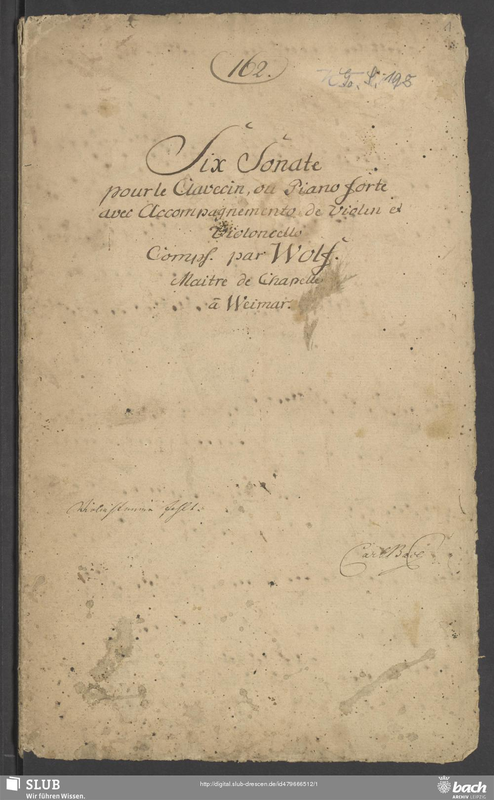 162.
N. I. 198
Six Sonate
pour le Clavecin, ou Piano forte
avec Accompagnements de Violin et
Violoncello
Comps. par Wolf.
Maitre de Chapelle
à Weimar.
Violinstimme fehlt.
SLUB
Wir führen Wissen.
http://digital.slub-dresden.de/id479686512/1
bach
ARCHIV LEIPZIG